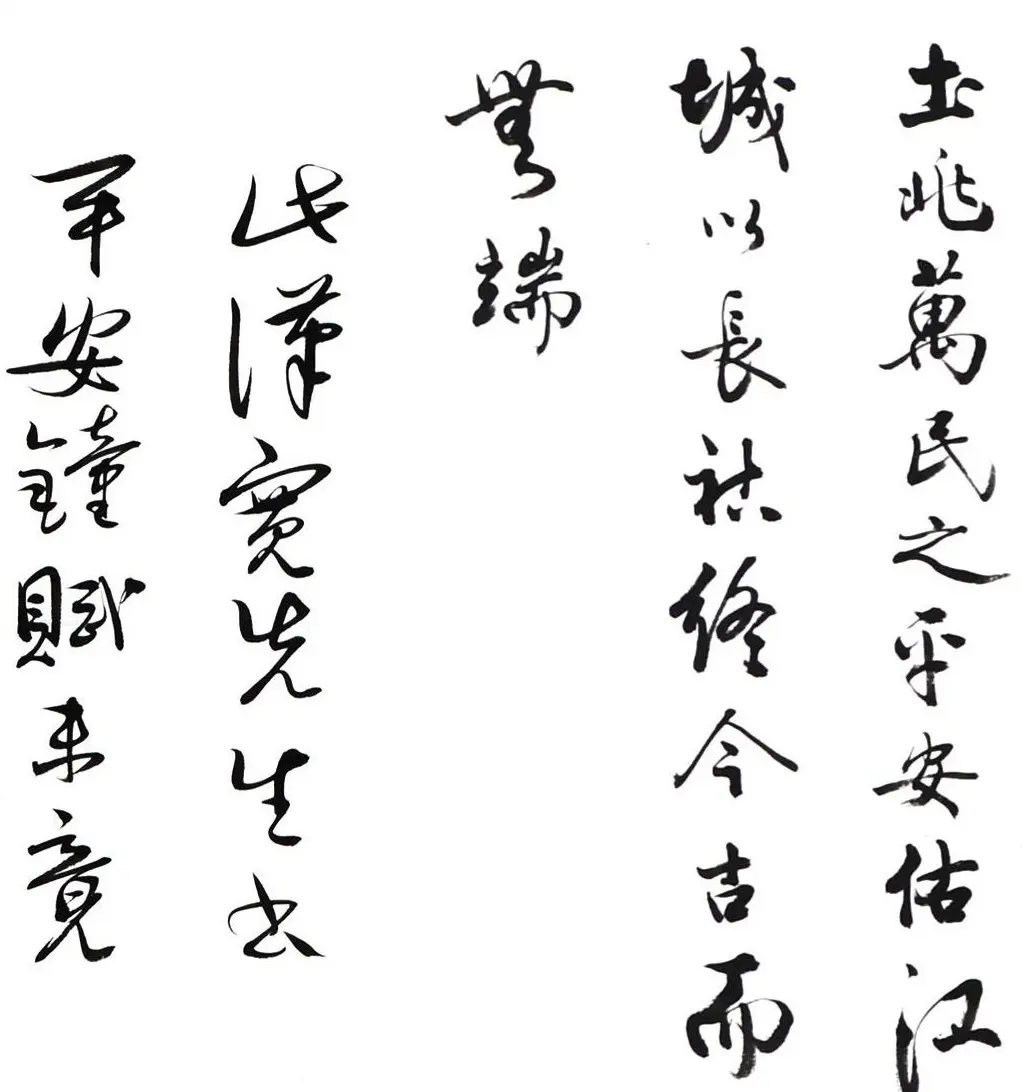 土兆萬民之平安佑江
城以長祜終今古而
無端
此漢寬先生書
平安鐘賦未竟